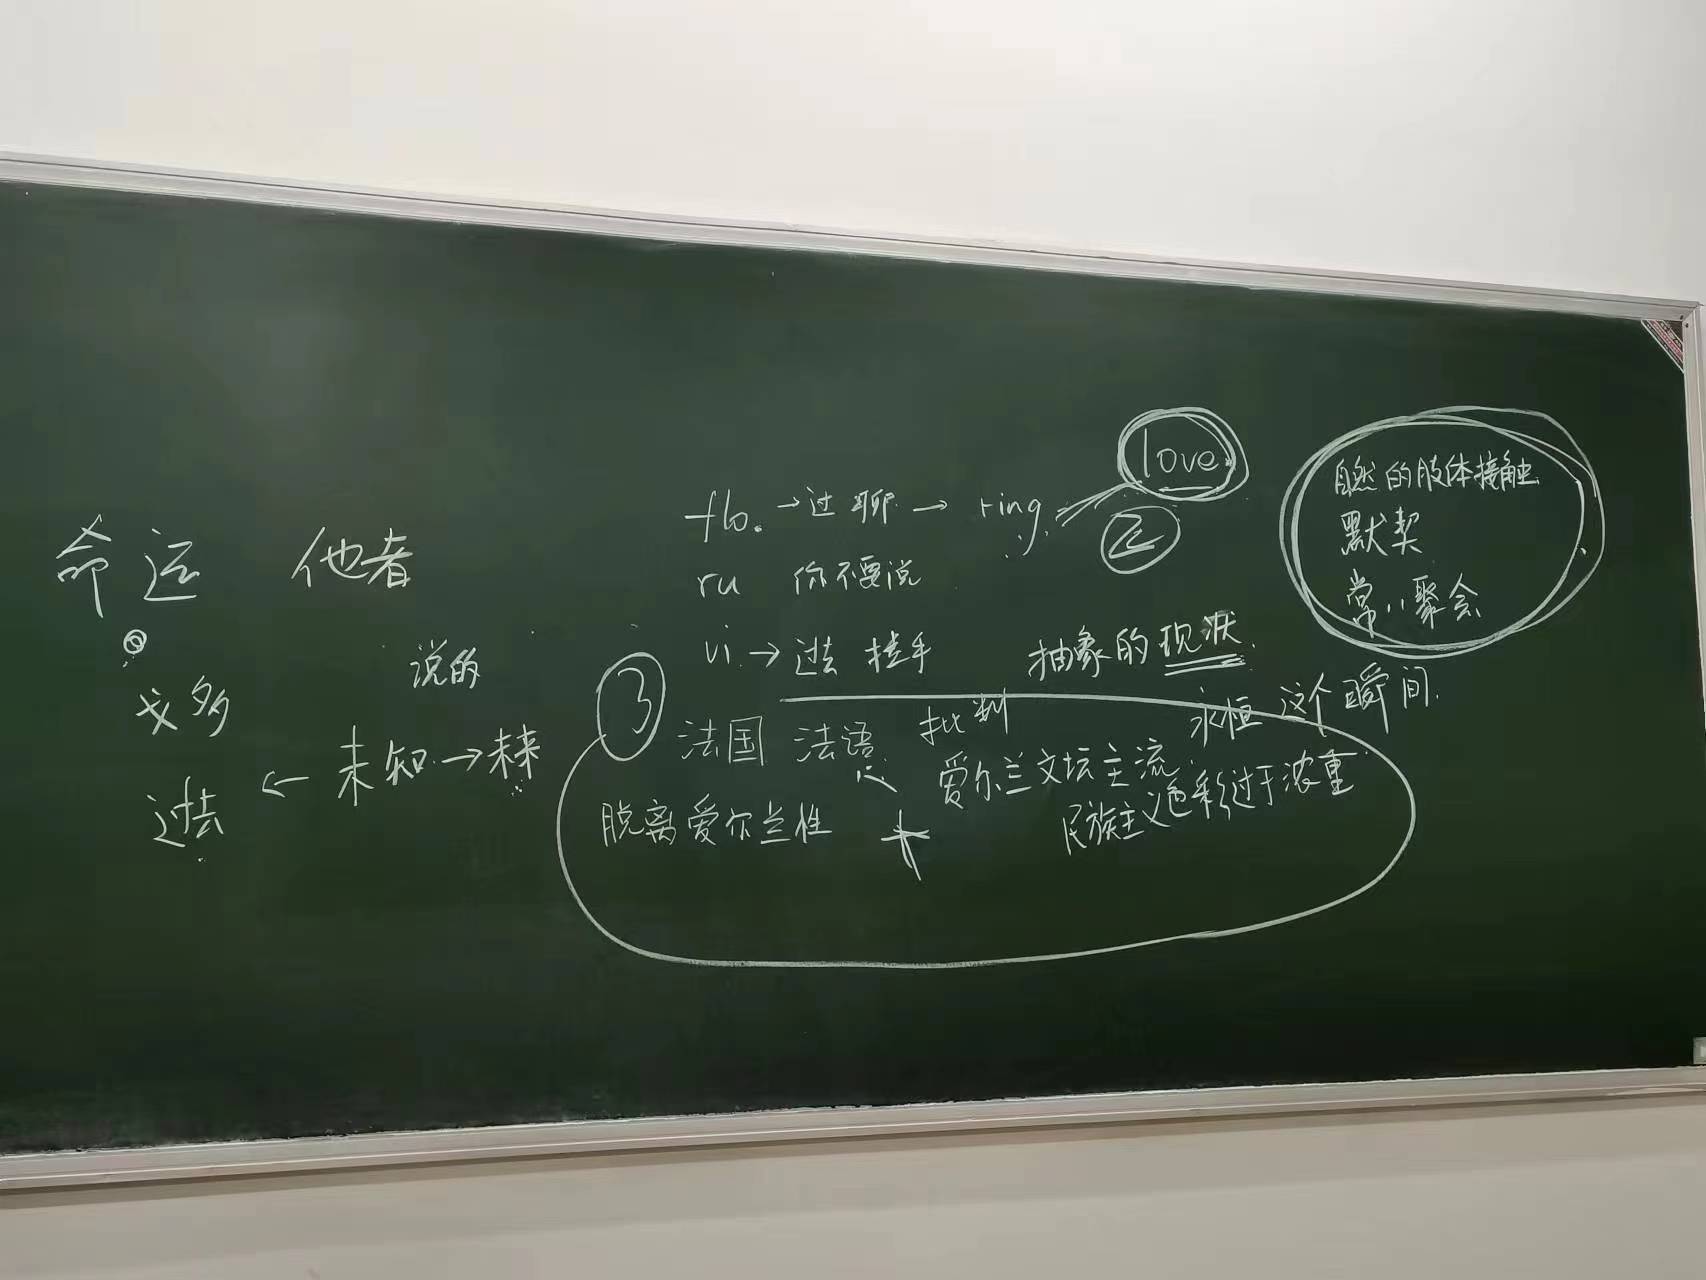 命运 他者
戈多
说的
过去 ← 未知 → 未来
flo. → 过 聊 → ring
love
②
ru 你不要说
vi → 过去 拉手
自然的肢体接触
默契
常常聚会
抽象的现状
永恒 这个瞬间
③
法国 法语
批判
脱离爱尔兰性
爱尔兰文坛主流
民族主义色彩过于浓重